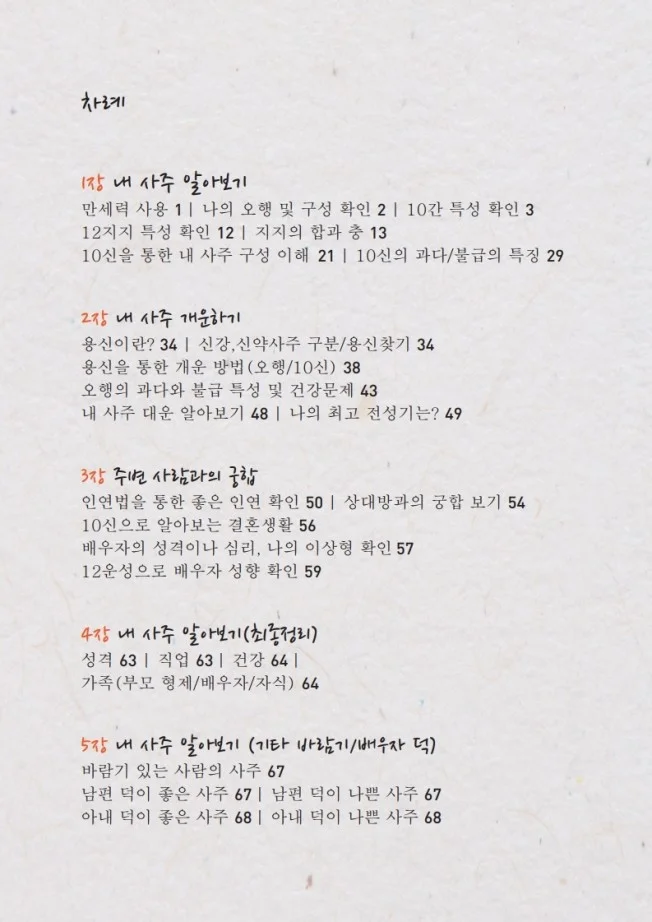 차례
1장 내 사주 알아보기
만세력 사용 1 | 나의 오행 및 구성 확인 2 | 10간 특성 확인 3
12지지 특성 확인 12 | 지지의 합과 충 13
10신을 통한 내 사주 구성 이해 21 | 10신의 과다/불급의 특징 29
2장 내 사주 개운하기
용신이란? 34 | 신강,신약사주 구분/용신찾기 34
용신을 통한 개운 방법(오행/10신) 38
오행의 과다와 불급 특성 및 건강문제 43
내 사주 대운 알아보기 48 | 나의 최고 전성기는? 49
3장 주변 사람과의 궁합
인연법을 통한 좋은 인연 확인 50 | 상대방과의 궁합 보기 54
10신으로 알아보는 결혼생활 56
배우자의 성격이나 심리, 나의 이상형 확인 57
12운성으로 배우자 성향 확인 59
4장 내 사주 알아보기(최종정리)
성격 63 | 직업 63 | 건강 64 |
가족(부모 형제/배우자/자식) 64
5장 내 사주 알아보기 (기타 바람기/배우자 덕)
바람기 있는 사람의 사주 67
남편 덕이 좋은 사주 67 | 남편 덕이 나쁜 사주 67
아내 덕이 좋은 사주 68 | 아내 덕이 나쁜 사주 68